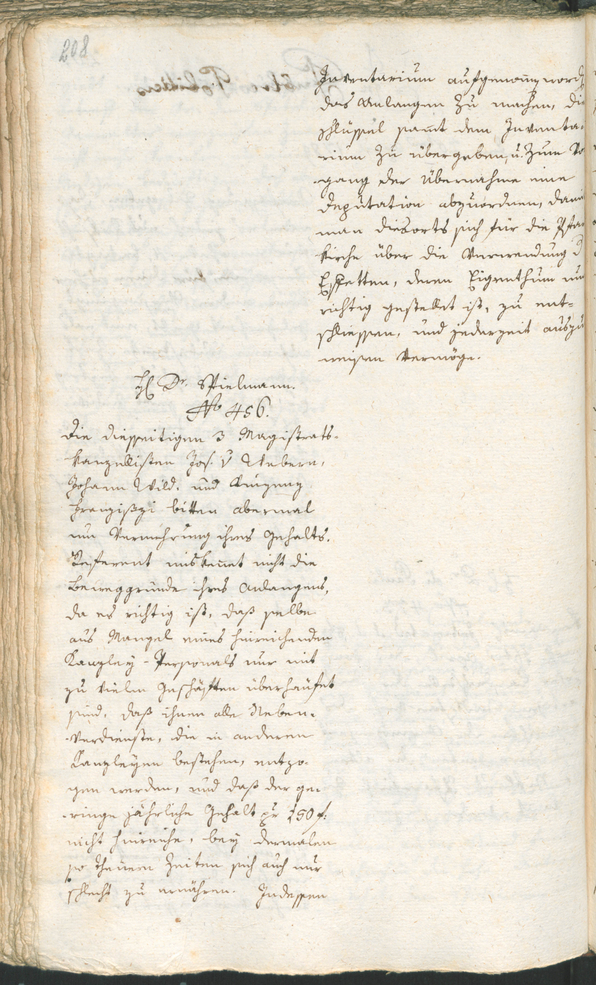 208
Inventarium aufgenommen word
das Anlangen zu machen, die
Schlüssel sammt dem Inventa-
rium zu übergeben, u. zum
gang der Übernahme eine
Deputation abzuordnen, dami
man diesorts sich für die Pfar
kirche über die Verwendung d
Effetten, deren Eigenthum nun
richtig gestellt ist, zu ent-
schliessen, und jederzeit auszu
weisen vermöge.
H Dr. Spielmann.
No 456.
Die diesseitigen 3 Magistrats-
kanzellisten Jos. v Webern,
Johann Wild. und
Franziszi bitten abermal
um Vermehrung ihres Gehalts.
Referent miskennt nicht die
Beweggründe ihres Anlangens,
da es richtig ist, daß selbe
aus Mangel eines hinreichenden
Kanzley-Personals nur mit
zu vielen Geschäften überhäufet
sind, daß ihnen alle Neben-
verdienste, die in anderen
Kanzleyen bestehen, entzo-
gen werden, und daß der ge-
ringe jährliche Gehalt pr 250 f.
nicht hinreiche, bey dermalen
so theuern Zeiten sich auch nur
schlecht zu ernähren. Indessen